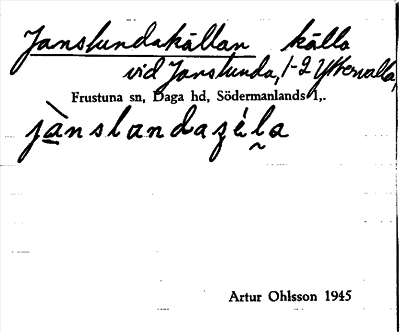 Janslundakällan källa
vid Janslunda, 1-2 Yttervalla,
Frustuna sn, Daga hd, Södermanlands l.
jànslandaʂéla
Artur Ohlsson 1945